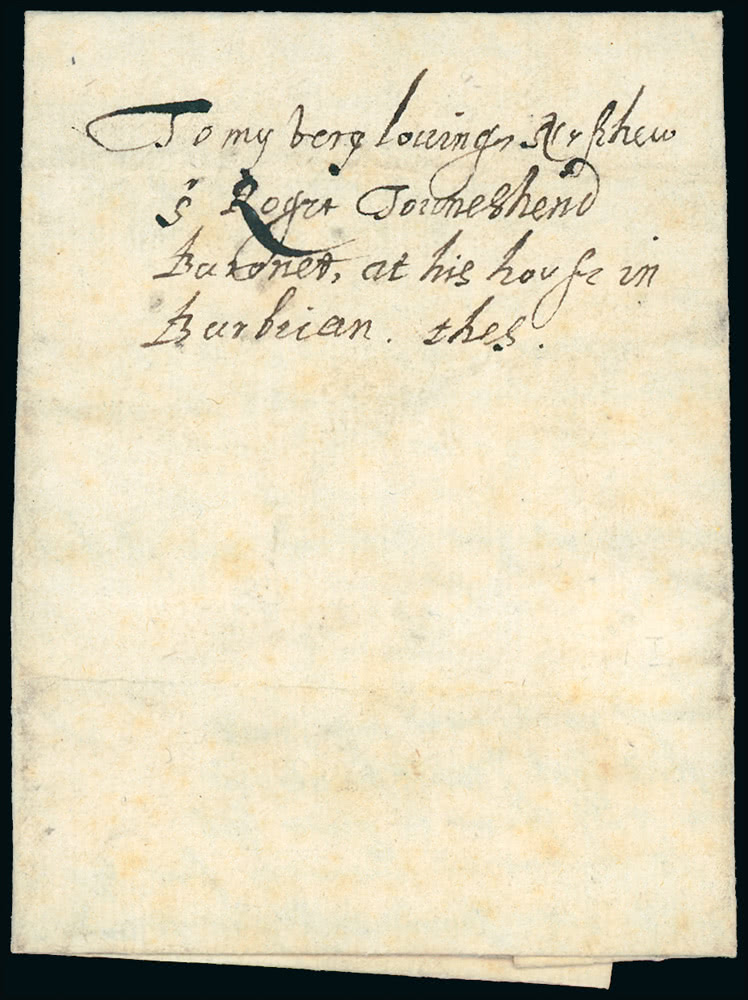 To my very loving Nephew
Sr Roger Touneshend
Baronet, at his house in
Barbican. thes.